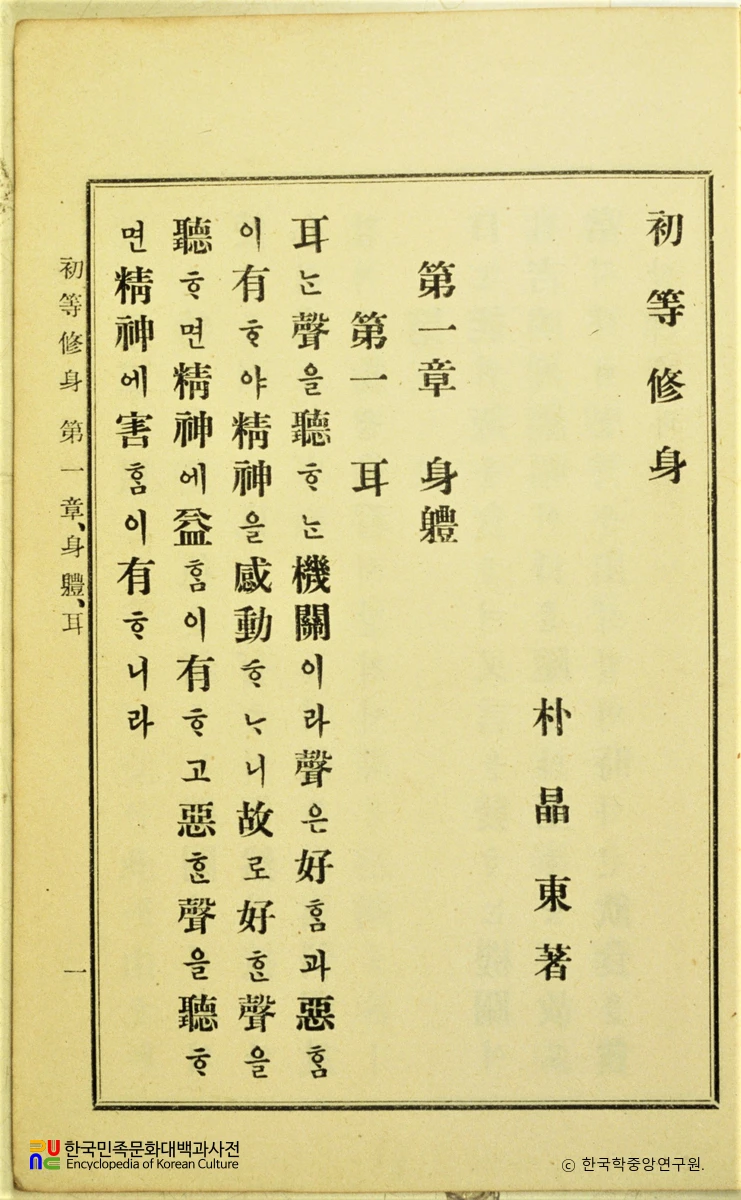 初等修身
朴晶東著
第一章 身軆
第一 耳
耳ᄂᆞᆫ聲을聽ᄒᆞᄂᆞᆫ機關이라聲은好ᄒᆞᆷ과惡ᄒᆞᆷ
이有ᄒᆞ야精神을感動ᄒᆞᄂᆞ니故로好ᄒᆞᆫ聲을
聽ᄒᆞ면精神에益ᄒᆞᆷ이有ᄒᆞ고惡ᄒᆞᆫ聲을聽ᄒᆞ
면精神에害ᄒᆞᆷ이有ᄒᆞ니라
初等修身 第一章、身軆、耳
一
한국민족문화대백과사전
Encyclopedia of Korean Culture
ⓒ 한국학중앙연구원.